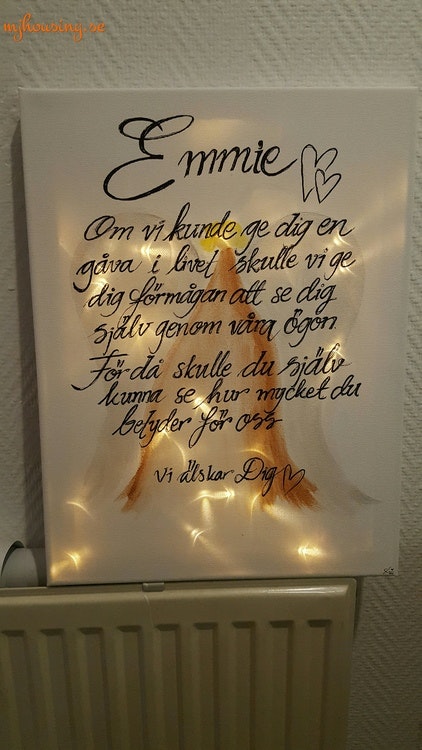 mjhousing.se
Emmie
Om vi kunde ge dig en
gåva i livet skulle vi ge
dig förmågan att se dig
själv genom våra ögon.
För då skulle du själv
kunna se hur mycket du
betyder för oss
Vi älskar Dig